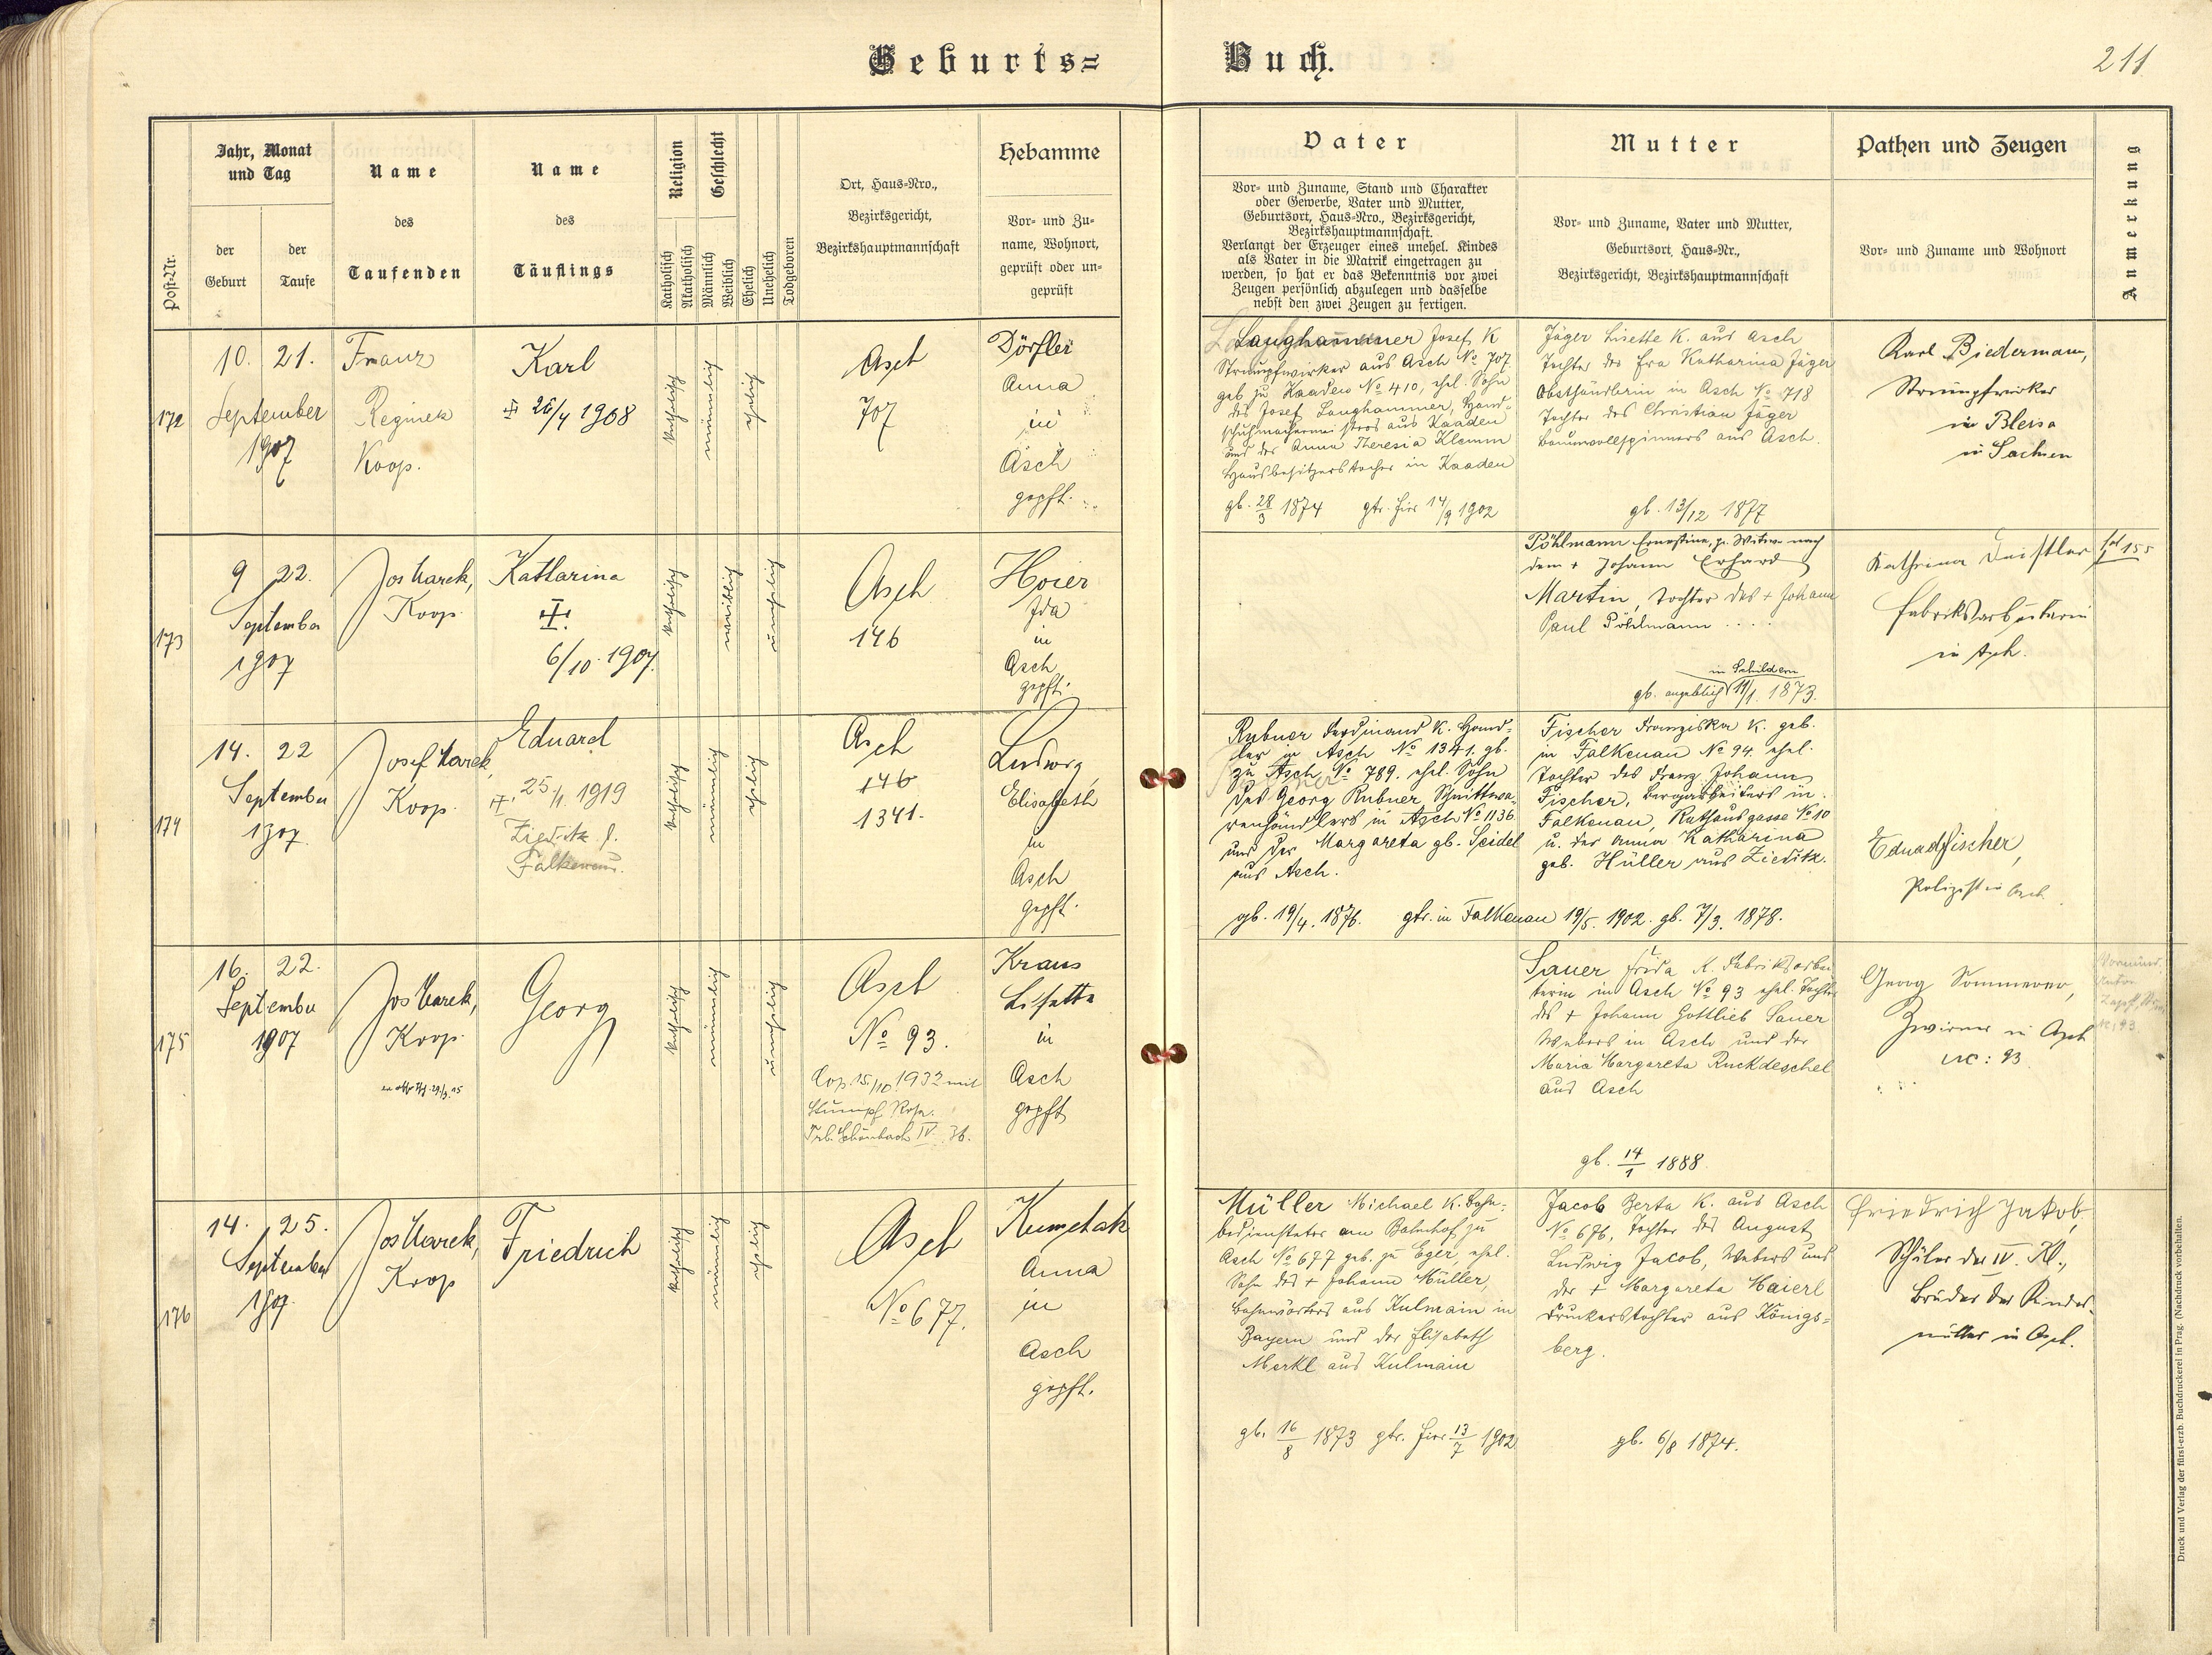 Geburts=
Buch.
211
Post-Nr.
Jahr, Monat
und Tag
der
Geburt
der
Taufe
Name
des
Taufenden
Name
des
Täuflings
Religion
Katholisch
Akatholisch
Geschlecht
Männlich
Weiblich
Ehelich
Unehelich
Todgeboren
Ort, Haus-Nro.,
Bezirksgericht,
Bezirkshauptmannschaft
Hebamme
Vor- und Zu-
name, Wohnort,
geprüft oder un-
geprüft
Vater
Vor- und Zuname, Stand und Charakter
oder Gewerbe, Vater und Mutter,
Geburtsort, Haus-Nro., Bezirksgericht,
Bezirkshauptmannschaft.
Verlangt der Erzeuger eines unehel. Kindes
als Vater in die Matrik eingetragen zu
werden, so hat er das Bekenntnis vor zwei
Zeugen persönlich abzulegen und dasselbe
nebst den zwei Zeugen zu fertigen.
Mutter
Vor- und Zuname, Vater und Mutter,
Geburtsort, Haus-Nr.,
Bezirksgericht, Bezirkshauptmannschaft
Pathen und Zeugen
Vor- und Zuname und Wohnort
Anmerkung
172
10. 21.
September
1907
Franz
Reginek
Koop.
Karl
26/4 1908
katholisch
männlich
ehelich
Asch
707
Dörfler
Anna
in
Asch
gepft.
Langhammer Josef, K
Strumpfwirker aus Asch No 707
geb zu Kaaden No 410, ehel. Sohn
des Josef Langhammer, Hand-
schuhmachermeisters aus Kaaden
und der Anna Theresia Klemm
Hausbesitzerstochter in Kaaden
gb. 28/3 1874 gtr. hier 14/9 1902
Jäger Lisette K. aus Asch
Tochter der Katharina Jäger
Obsthändlerin in Asch No 718
Tochter des Christian Jäger
Baumwollspinners aus Asch.
gb. 13/12 1877
Karl Biedermann,
Strumpfwirker
in Bleisa
in Sachsen
173
9 22.
September
1907
Jos Marek,
Koop.
Katharina
6/10. 1907.
katholisch
weiblich
unehelich
Asch
146
Hoier
Ida
in
Asch
gepft.
Pöhlmann Ernestine, Witwe nach
dem + Johann Erhard
Martin, Tochter des + Johann
Paul Pöhlmann
in Schildern
gb. angeblich 11/1. 1873.
Kathrina
Fabriksarbeiterin
in Asch.
fol 155
174
14. 22
September
1907.
Josef Marek,
Koop.
Eduard
25/1. 1919
Zieditz
Falkenau.
katholisch
männlich
ehelich
Asch
146
1341.
Ludwig
Elisabeth
in
Asch
gepft.
Rubner Ferdinand K. Händ-
ler in Asch No 1341. gb.
zu Asch No 789. ehel. Sohn
des Georg Rubner, Schnittwa-
renhändlers in Asch No 1136
und der Margareta gb. Seidel
aus Asch.
gb. 19/4. 1876. gtr. in Falkenau 19/5. 1902.
Fischer Franziska K. geb.
in Falkenau No 94. ehel.
Tochter des Franz Johann
Fischer, Bergarbeiters in
Falkenau, Rathausgasse No 10
u. der Anna Katharina
geb. Hüller aus Zieditz.
gb. 7/3. 1878.
Eduard Fischer,
Polizist in Asch
175
16. 22.
September
1907
Jos Marek,
Koop.
Georg
katholisch
männlich
unehelich
Asch
No 93.
Cop. 15/10 1932 mit
Stumpf Rosa.
Trb. Schönbach IV. 36.
Kraus
Lisette
in
Asch
gepft
Sauer Frida K. Fabriksarbei
terin in Asch No 93 ehel. Tochter
des + Johann Gottlieb Sauer
Webers in Asch und der
Maria Margareta Ruckdeschel
aus Asch
gb. 14/1 1888
Georg Sommerer,
Zwirner in Asch
Nr: 93
176
14. 25.
September
1907.
Jos Marek,
Koop
Friedrich
katholisch
männlich
ehelich
Asch
No 677.
Kumchak
Anna
in
Asch
gepft.
Müller Michael K. Bahn-
bediensteter am Bahnhof zu
Asch No 677 geb. zu Eger, ehel.
Sohn des + Johann Müller,
Bahnwärters aus Kulmain in
Bayern und der Elisabeth
Merkl aus Kulmain
gb. 16/8 1873 gtr. hier 13/7 1902
Jacob Berta K. aus Asch
No 676, Tochter des August
Ludwig Jacob, Webers und
der + Margareta Maierl
Druckerstochter aus Königs-
berg.
gb. 6/8 1874.
Friedrich Jakob,
Schüler der IV. Kl.,
Bruder der Kindes-
mutter in Asch.
Druck und Verlag der fürst-erzb. Buchdruckerei in Prag. (Nachdruck vorbehalten.